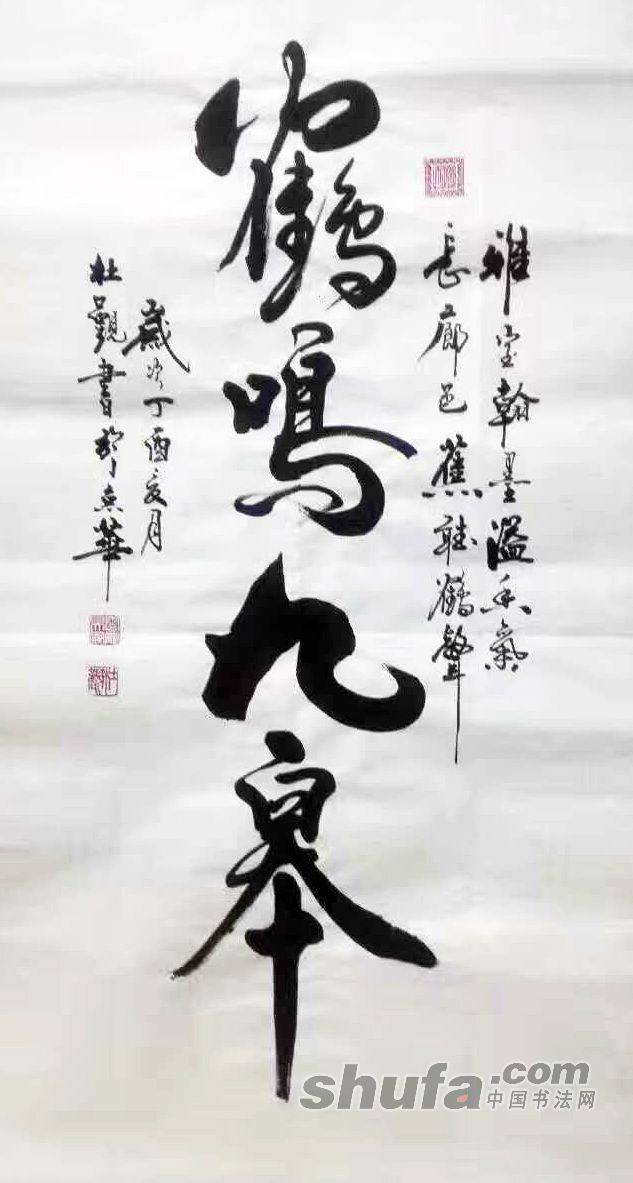 雅室翰墨溢香氣
長廊邑蕉聽鶴聲
鶴鳴九皋
歲次丁酉亥月
杜觀書於京華
shufa.com
中国书法网